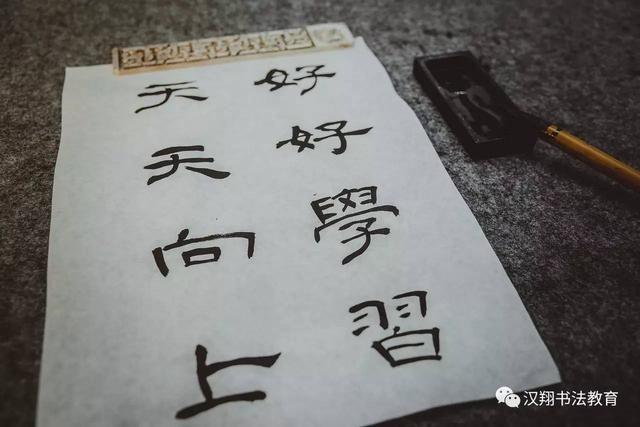 好好學習
天天向上
汉翔书法教育